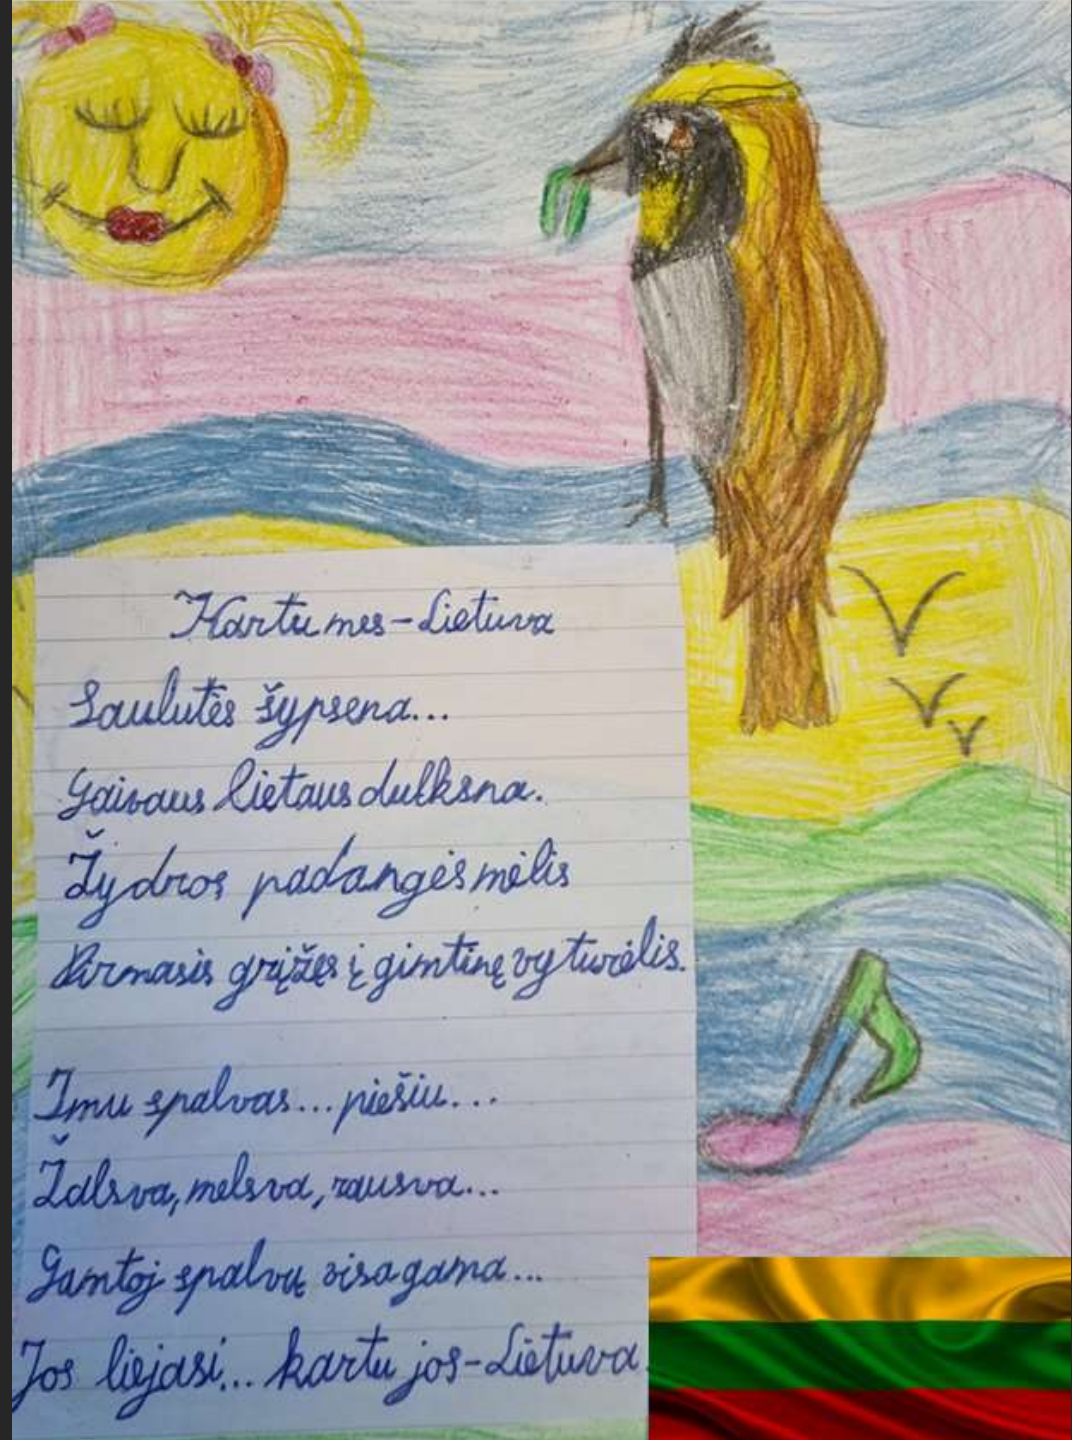 Kartu mes-Lietuva
Saulutės šypsena...
Gaivaus lietaus dulksna.
Žydros padangės mėlis
Pirmasis grįžęs į gimtinę vyturėlis.
Imu spalvas... piešiu...
Žalsva, melsva, rausva...
Gamtoj spalvų visa gama...
Jos liejasi... kartu jos-Lietuva.